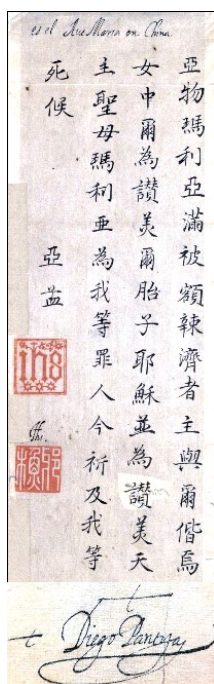 es el Ave Maria en China
亞物瑪利亞滿被額辣濟者主與爾偕焉
女中爾為讃美爾胎子耶穌並為讃美天
主聖母瑪利亞為我等罪人今祈及我等
死候 亞孟
ihs
Diego Pantoja